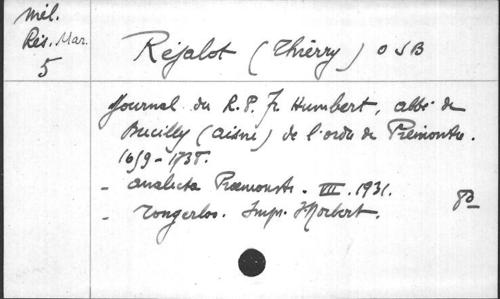 Mél.
Rés. Mar.
5
Réjalot (Thierry) OSB
Journal du R.P. Fr Humbert, abbé de
Bucilly (Aisne) de l'ordre de Prémontré.
1659-1735.
- Analecta Praemonstr. VIII. 1931.
- Tongerloo. Impr. St Norbert.
8°